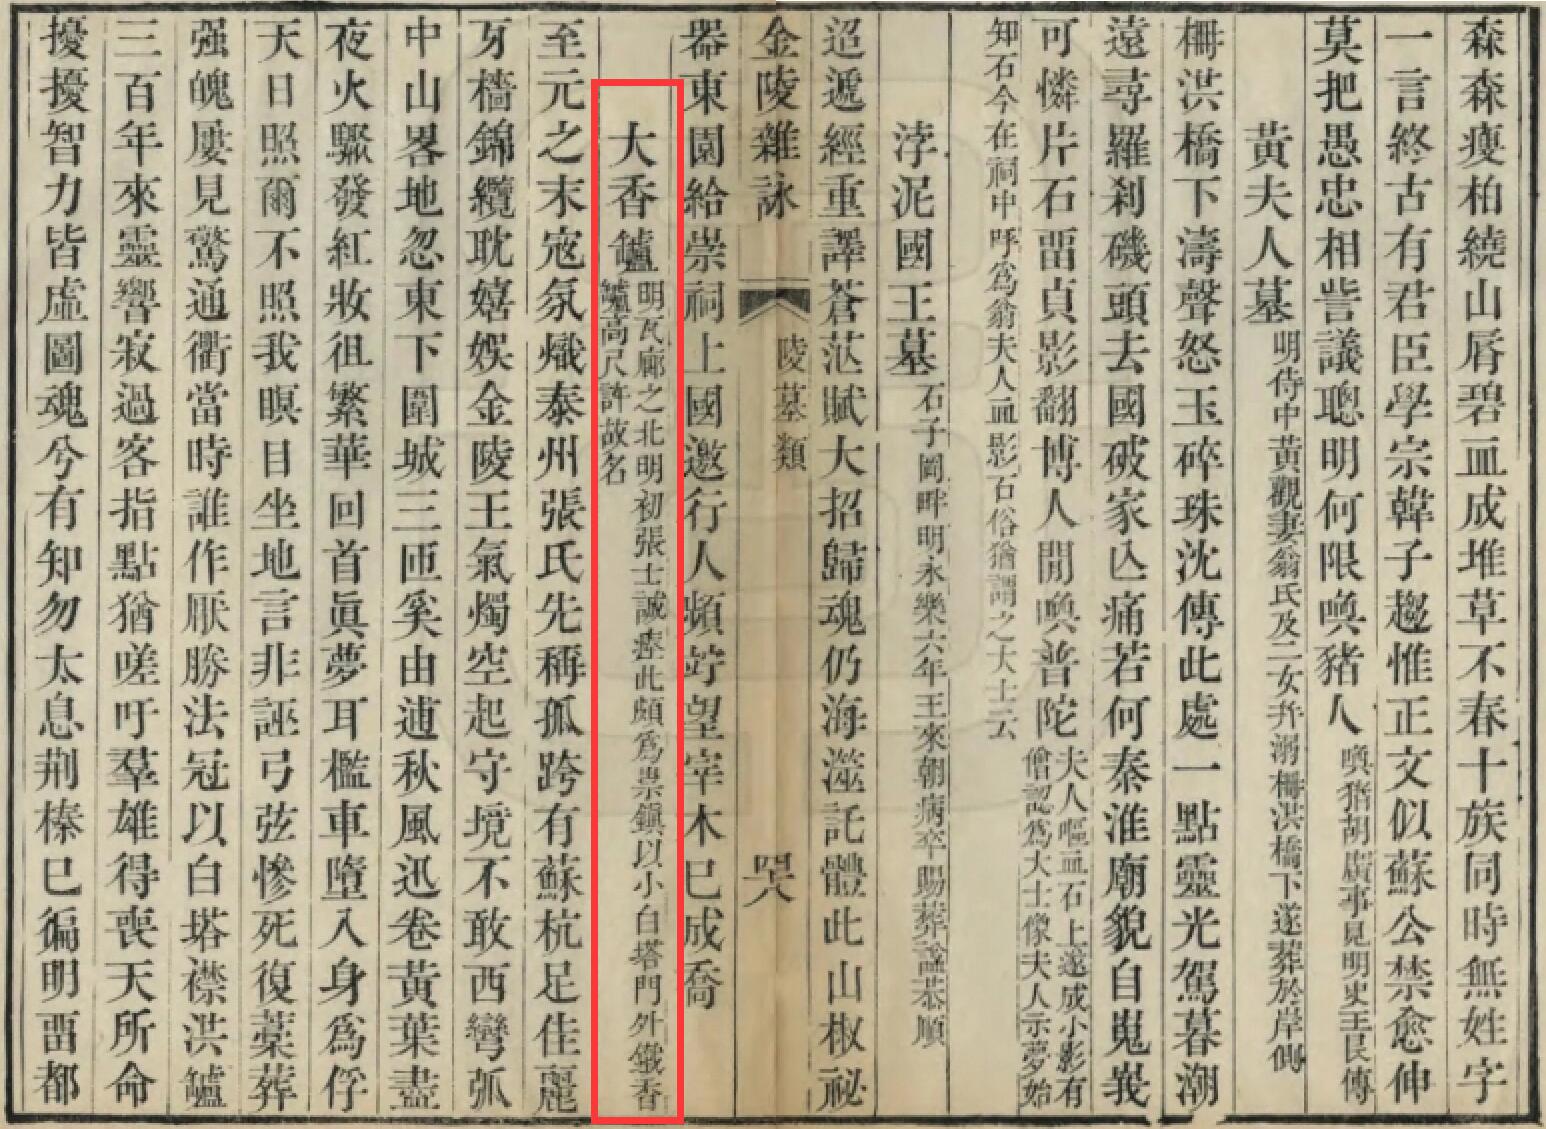 森森瘦柏繞山脣碧血成堆草不春十族同時無姓字
一言終古有君臣學宗韓子趨惟正文似蘇公禁愈伸
莫把愚忠相訾議聰明何限喚豬人
喚猪胡廣事見明史王艮傳
黃夫人墓
明侍中黃觀妻翁氏及二女幷溺柵洪橋下遂葬於岸側
柵洪橋下濤聲怒玉碎珠沈傳此處一點靈光駕暮潮
遠尋羅刹磯頭去國破家亾痛若何秦淮廟貌自嵬峩
可憐片石畱貞影翻博人閒喚普陀
夫人嘔血石上遂成小影有
僧認爲大士像夫人示夢始
知石今在祠中呼爲翁夫人血影石俗猶謂之大士云
浡泥國王墓
石子岡畔明永樂六年王來朝病卒賜葬諡恭順
迢遞經重譯蒼茫賦大招歸魂仍海澨託體此山椒祕
金陵雜詠
陵墓類
器東園給崇祠上國邀行人頻竚望宰木已成喬
大香鑪
明瓦廊之北明初張士誠瘞此頗爲祟鎮以小白塔門外鐵香
鑪高尺許故名
至元之末寇氛熾泰州張氏先稱孤跨有蘇杭足佳麗
牙檣錦纜耽嬉娛金陵王氣燭空起守境不敢西彎弧
中山畧地忽東下圍城三匝奚由逋秋風迅卷黃葉盡
夜火驟發紅妝徂繁華回首眞夢耳檻車墮入身爲俘
天日照爾不照我瞑目坐地言非誣弓弦慘死復藁葬
强魄屢見驚通衢當時誰作厭勝法冠以白塔襟洪鑪
三百年來靈響寂過客指點猶嗟吁羣雄得喪天所命
擾擾智力皆虛圖魂兮有知勿太息荆榛已徧明畱都